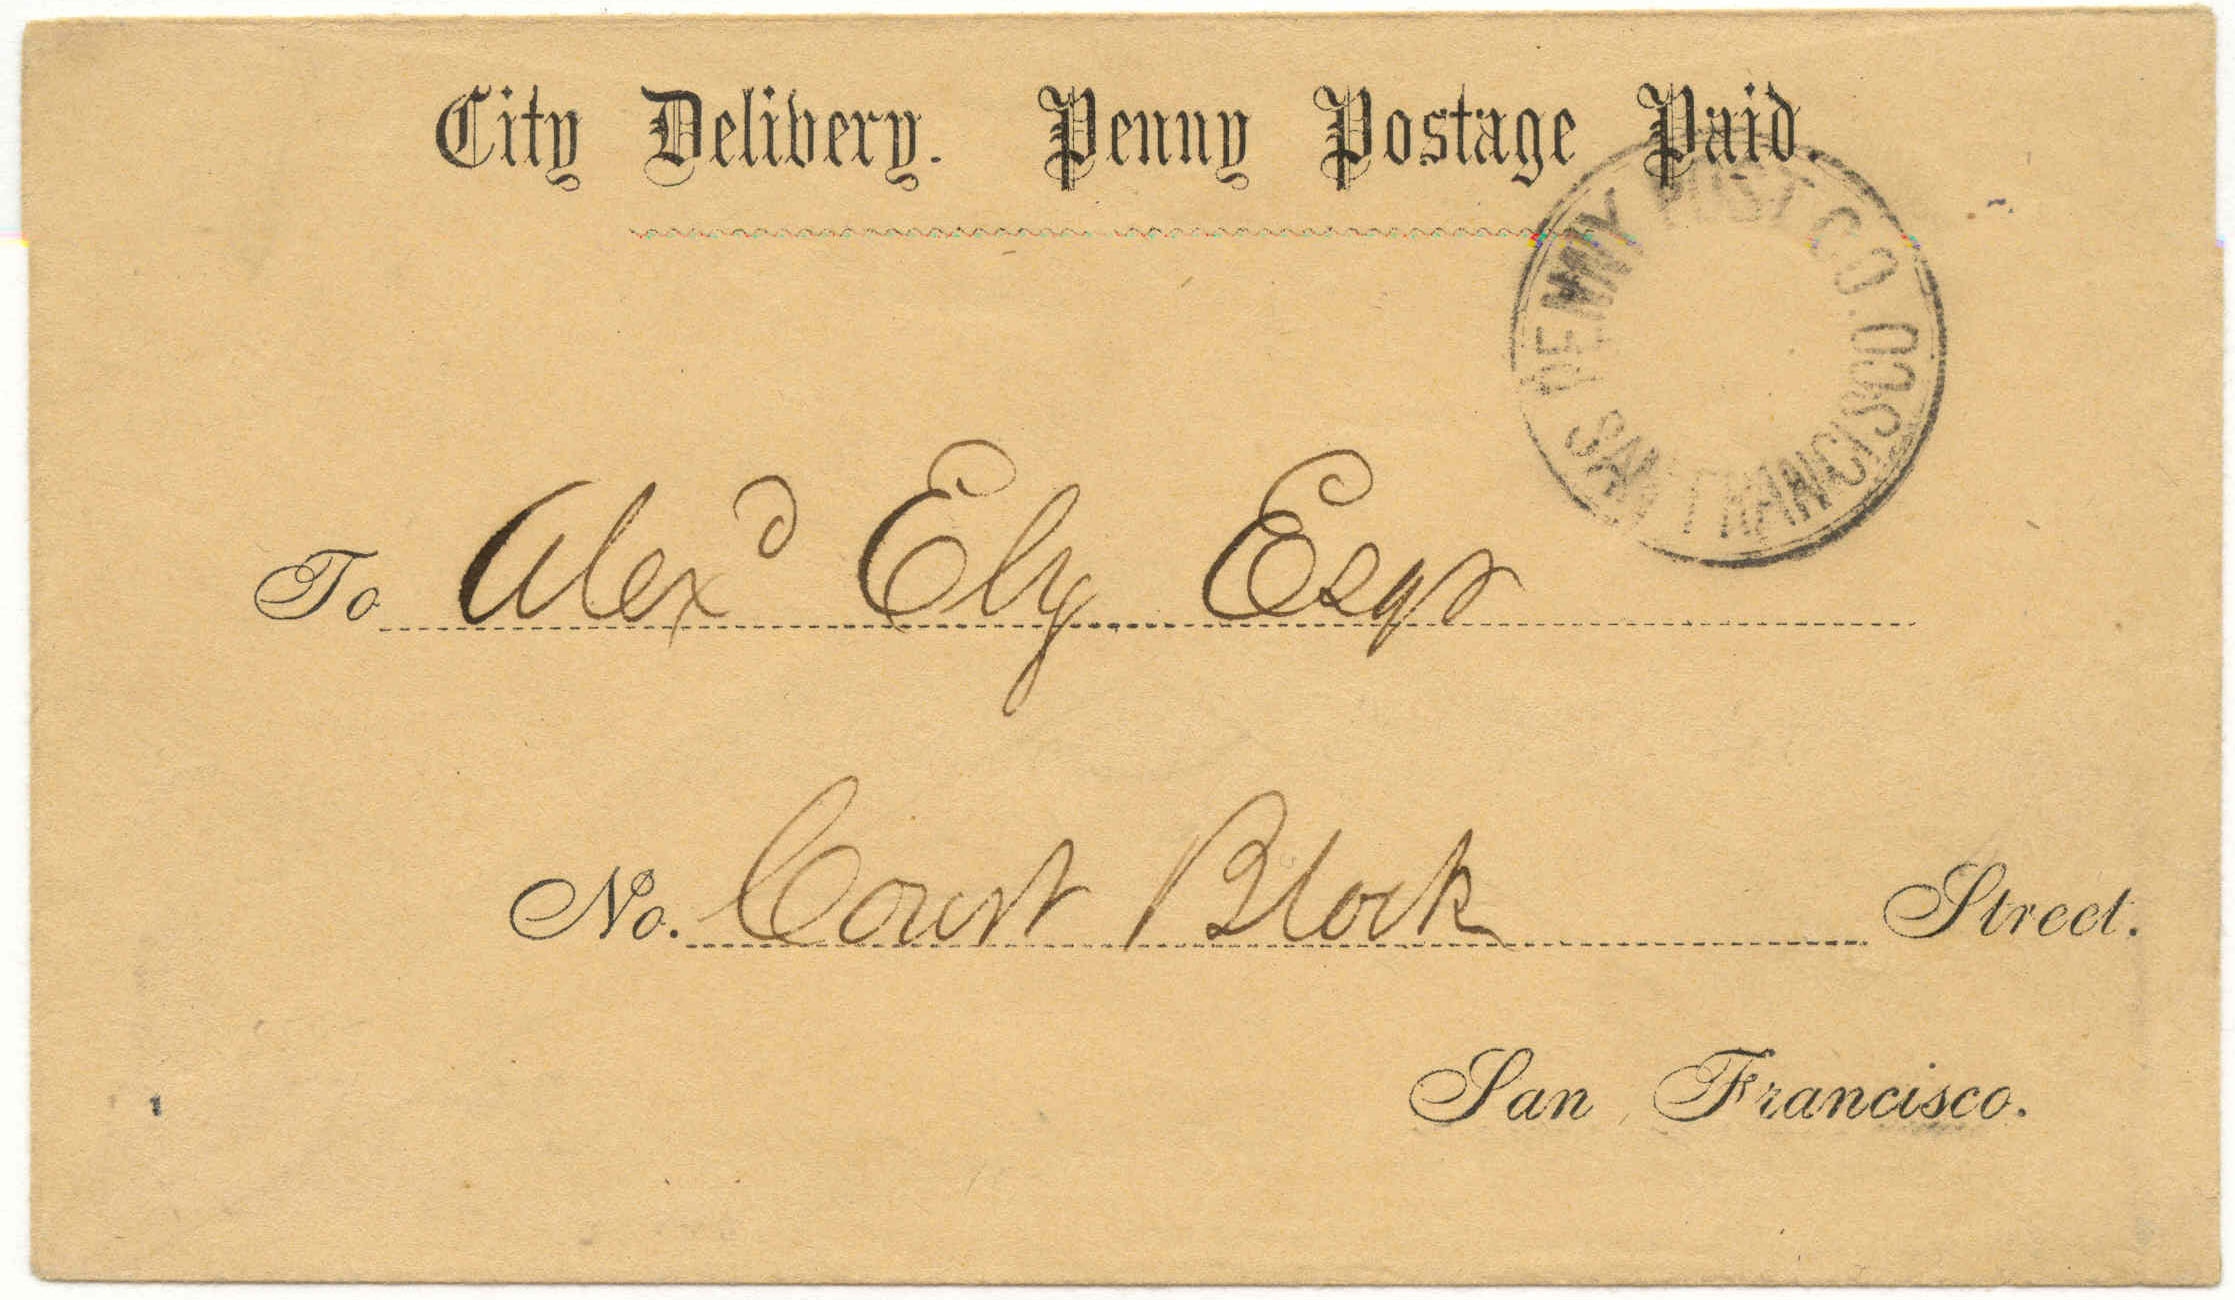 City Delivery. Penny Postage Paid.
PENNY POST CO.
SAN FRANCISCO
To Alexd Ely Esqr
No. Court Block Street.
San Francisco.